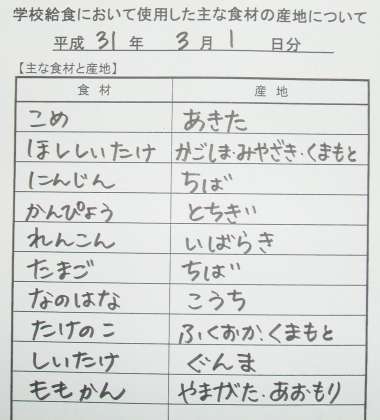 学校給食において使用した主な食材の産地について
平成 31 年 3 月 1 日分
【主な食材と産地】
食材 産地
こめ あきた
ほししいたけ かごしま・みやざき・くまもと
にんじん ちば
かんぴょう とちぎ
れんこん いばらき
たまご ちば
なのはな こうち
たけのこ ふくおか、くまもと
しいたけ ぐんま
ももかん やまがた・あおもり